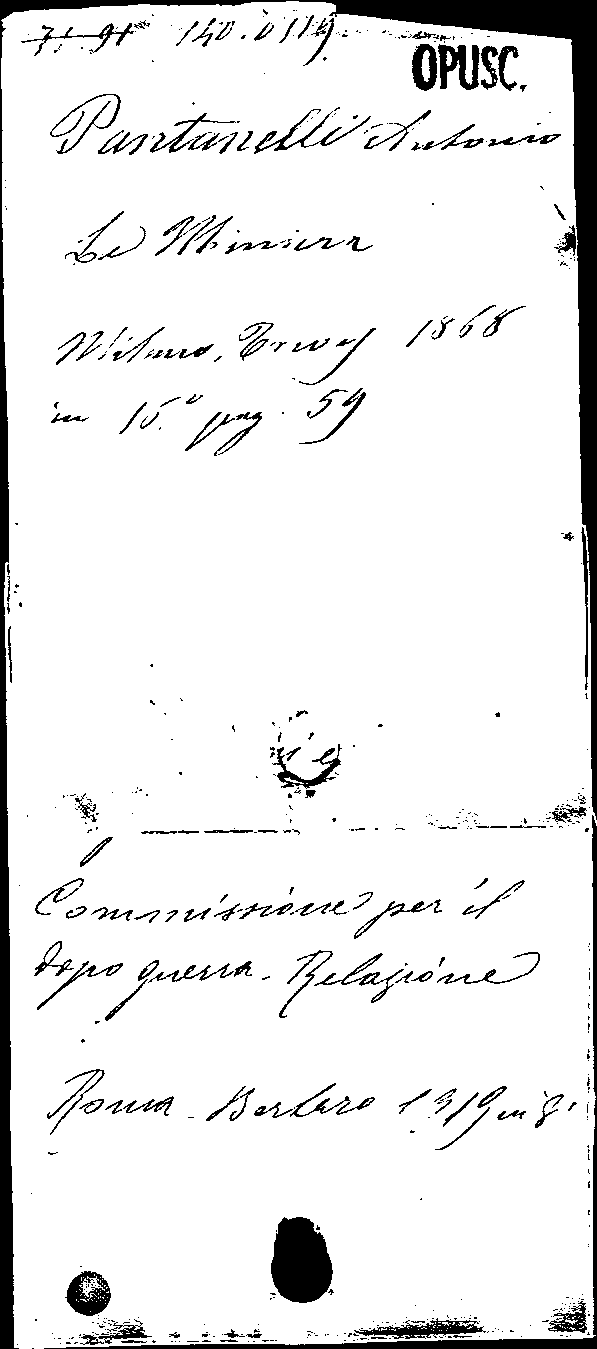 71. 91 140.0119
OPUSC.
Pantanelli Antonio
Le Miniere
Milano, Treves 1868
in 16.° pag. 59
Commissione per il
dopo guerra - Relazione
Roma - Bertero 1919 in 8°